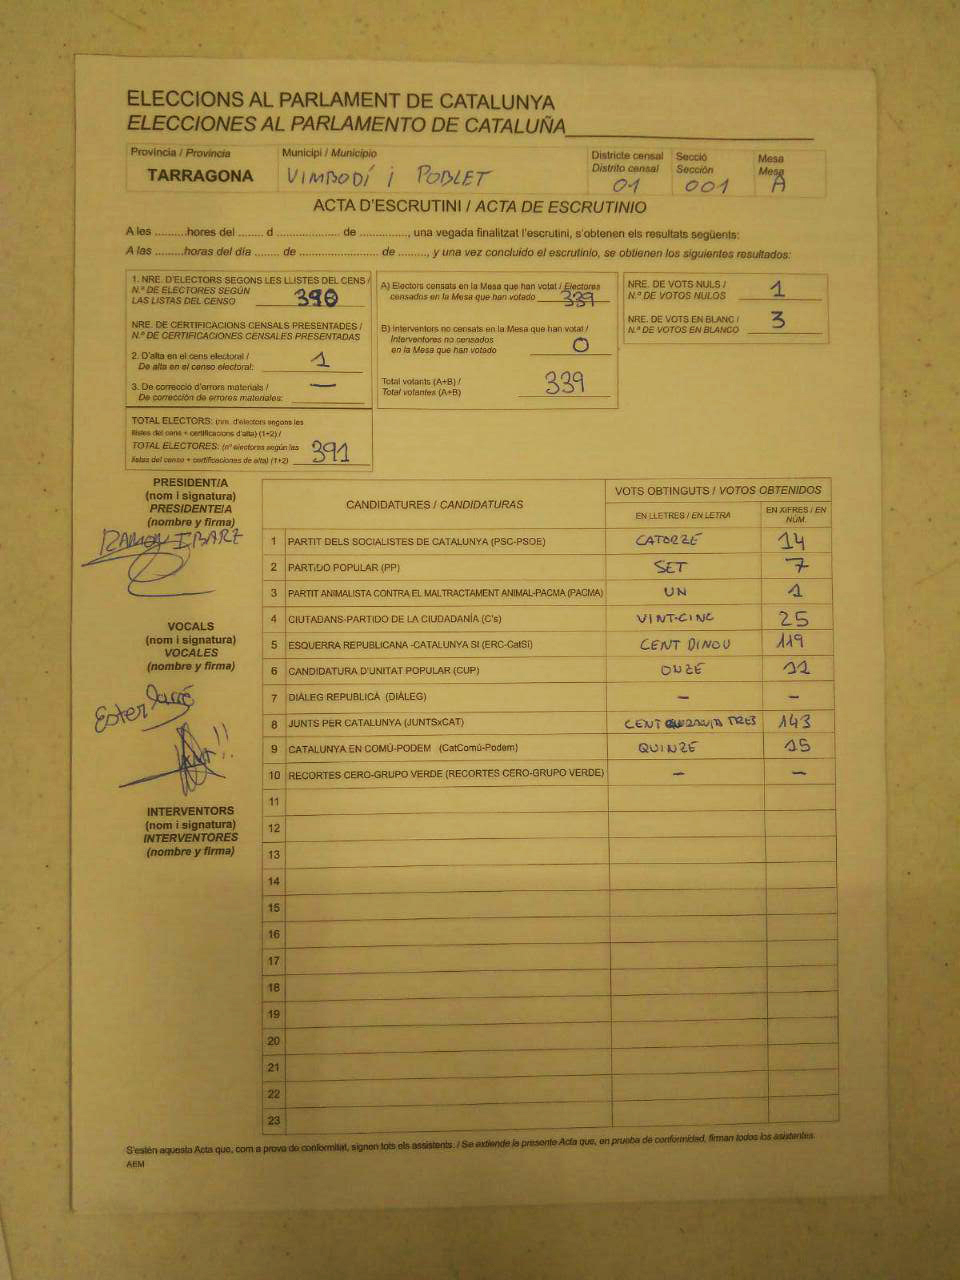 ELECCIONS AL PARLAMENT DE CATALUNYA
ELECCIONES AL PARLAMENTO DE CATALUÑA
Província / Provincia Municipi / Municipio Districte censal Secció Mesa
Distrito censal Sección Mesa
TARRAGONA VIMBODÍ i POBLET 01 001 A
ACTA D'ESCRUTINI / ACTA DE ESCRUTINIO
A les ..........hores del ........ d ..................... de ..............., una vegada finalitzat l'escrutini, s'obtenen els resultats següents:
A las ..........horas del día ........ de ......................... de ........., y una vez concluido el escrutinio, se obtienen los siguientes resultados:
1. NRE. D'ELECTORS SEGONS LES LLISTES DEL CENS /
N.º DE ELECTORES SEGÚN
LAS LISTAS DEL CENSO 390
NRE. DE CERTIFICACIONS CENSALS PRESENTADES /
N.º DE CERTIFICACIONES CENSALES PRESENTADAS
2. D'alta en el cens electoral /
De alta en el censo electoral: 1
3. De correcció d'errors materials / —
De corrección de errores materiales:
TOTAL ELECTORS: (nre. d'electors segons les
llistes del cens + certificacions d'alta) (1+2) /
TOTAL ELECTORES: (nº electores según las
listas del censo + certificaciones de alta) (1+2) 391
A) Electors censats en la Mesa que han votat / Electores
censados en la Mesa que han votado 339
B) Interventors no censats en la Mesa que han votat /
Interventores no censados
en la Mesa que han votado 0
Total votants (A+B) /
Total votantes (A+B) 339
NRE. DE VOTS NULS /
N.º DE VOTOS NULOS 1
NRE. DE VOTS EN BLANC /
N.º DE VOTOS EN BLANCO 3
PRESIDENT/A
(nom i signatura)
PRESIDENTE/A
(nombre y firma)
RAMON IBARZ
VOCALS
(nom i signatura)
VOCALES
(nombre y firma)
Ester
INTERVENTORS
(nom i signatura)
INTERVENTORES
(nombre y firma)
CANDIDATURES / CANDIDATURAS VOTS OBTINGUTS / VOTOS OBTENIDOS
EN LLETRES / EN LETRA EN XIFRES / EN NÚM.
1 PARTIT DELS SOCIALISTES DE CATALUNYA (PSC-PSOE) CATORZE 14
2 PARTIDO POPULAR (PP) SET 7
3 PARTIT ANIMALISTA CONTRA EL MALTRACTAMENT ANIMAL-PACMA (PACMA) UN 1
4 CIUTADANS-PARTIDO DE LA CIUDADANÍA (C's) VINT-CINC 25
5 ESQUERRA REPUBLICANA -CATALUNYA SÍ (ERC-CatSí) CENT DINOU 119
6 CANDIDATURA D'UNITAT POPULAR (CUP) ONZE 11
7 DIÀLEG REPUBLICÀ (DIÀLEG) — —
8 JUNTS PER CATALUNYA (JUNTSxCAT) CENT QUARANTA TRES 143
9 CATALUNYA EN COMÚ-PODEM (CatComú-Podem) QUINZE 15
10 RECORTES CERO-GRUPO VERDE (RECORTES CERO-GRUPO VERDE) — —
11
12
13
14
15
16
17
18
19
20
21
22
23
S'estén aquesta Acta que, com a prova de conformitat, signen tots els assistents. / Se extiende la presente Acta que, en prueba de conformidad, firman todos los asistentes.
AEM